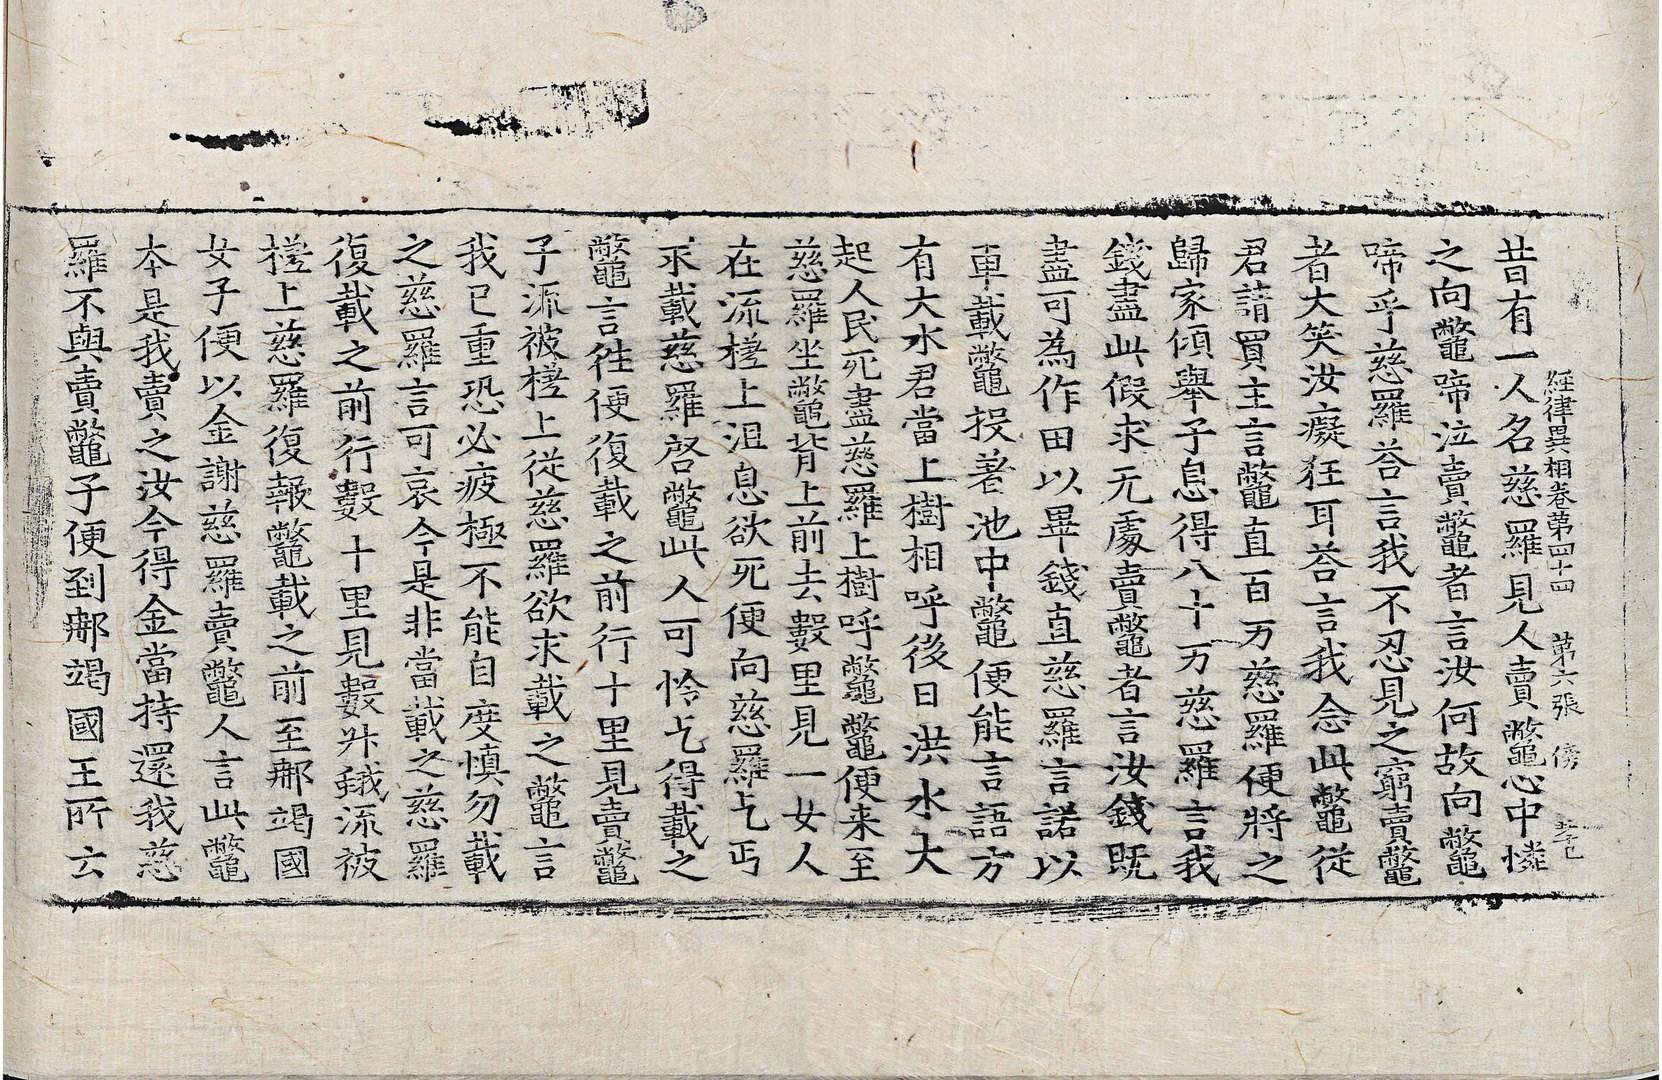 經律異相卷第四十四 第六張 傍
昔有一人名慈羅見人賣鼈心中憐
之向鼈啼泣賣鼈者言汝何故向鼈
啼乎慈羅荅言我不忍見之窮賣鼈
者大笑汝癡狂耳荅言我念此鼈従
君請買主言鼈直百万慈羅便將之
歸家傾舉子息得八十万慈羅言我
錢盡此假求无處賣鼈者言汝錢既
盡可為作田以畢錢直慈羅言諾以
車載鼈投著池中鼈便能言語方
有大水君當上樹相呼後日洪水大
起人民死盡慈羅上樹呼鼈鼈便来至
慈羅坐鼈背上前去數里見一女人
在流槎上沮息欲死便向慈羅乞丐
求載慈羅啓鼈此人可怜乞得載之
鼈言徃便復載之前行十里見賣鼈
子流被槎上從慈羅欲求載之鼈言
我已重恐必疲極不能自度慎勿載
之慈羅言可哀今是非當載之慈羅
復載之前行數十里見數升蛾流被
槎上慈羅復報鼈載之前至那竭國
女子便以金謝慈羅賣鼈人言此鼈
本是我賣之汝今得金當持還我慈
羅不與賣鼈子便到那竭國王所云